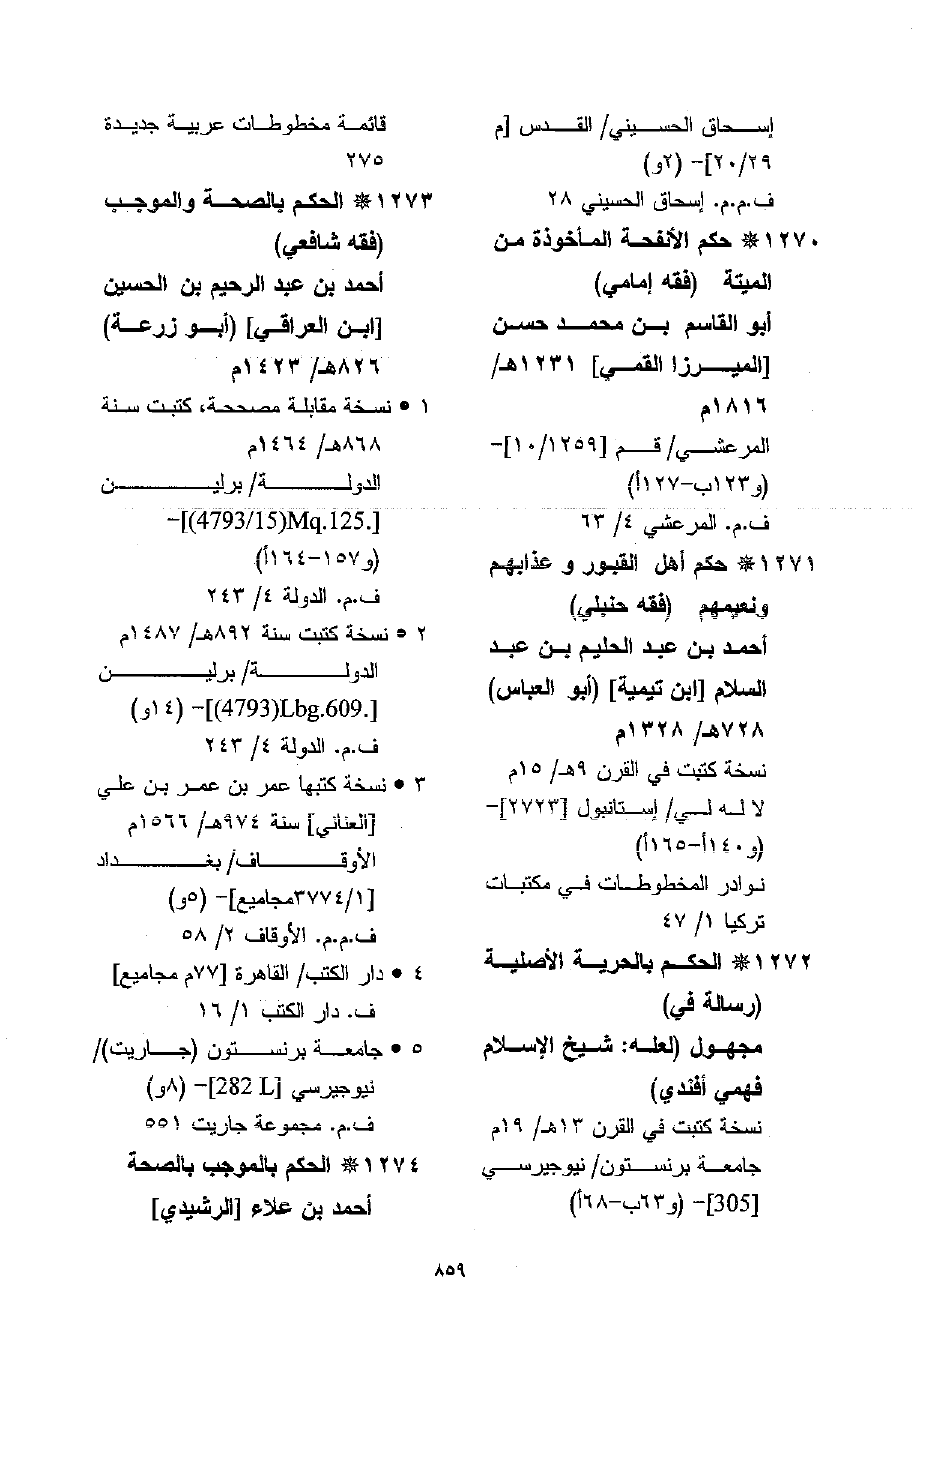 إسحاق الحسيني/ القدس [م
٢٠/٢٩]- (٢و)
ف.م.م. إسحاق الحسيني ٢٨
١٢٧٠ * حكم الأنفحة المأخوذة من
الميتة (فقه إمامي)
أبو القاسم بن محمد حسن
[الميرزا القمي] ١٢٣١هـ/
١٨١٦م
المرعشي/ قم [١٠/١٢٥٩]-
(و١٢٣ب-١٢٧أ)
ف.م. المرعشي ٤/ ٦٣
١٢٧١ * حكم أهل القبور و عذابهم
ونعيمهم (فقه حنبلي)
أحمد بن عبد الحليم بن عبد
السلام [ابن تيمية] (أبو العباس)
٧٢٨هـ/ ١٣٢٨م
نسخة كتبت في القرن ٩هـ/ ١٥م
لا له لي/ إستانبول [٢٧٢٣]-
(و١٤٠أ-١٦٥أ)
نوادر المخطوطات في مكتبات
تركيا ١/ ٤٧
١٢٧٢ * الحكم بالحرية الأصلية
(رسالة في)
مجهول (لعله: شيخ الإسلام
فهمي أفندي)
نسخة كتبت في القرن ١٣هـ/ ١٩م
جامعة برنستون/ نيوجيرسي
[305]- (و٦٣ب-٦٨أ)
قائمة مخطوطات عربية جديدة
٢٧٥
١٢٧٣ * الحكم بالصحة والموجب
(فقه شافعي)
أحمد بن عبد الرحيم بن الحسين
[ابن العراقي] (أبو زرعة)
٨٢٦هـ/ ١٤٢٣م
١ • نسخة مقابلة مصححة، كتبت سنة
٨٦٨هـ/ ١٤٦٤م
الدولة/ برلين
[.Mq.125(4793/15)]-
(و١٥٧-١٦٤أ)
ف.م. الدولة ٤/ ٢٤٣
٢ • نسخة كتبت سنة ٨٩٢هـ/ ١٤٨٧م
الدولة/ برلين
[.Lbg.609(4793)]- (١٤و)
ف.م. الدولة ٤/ ٢٤٣
٣ • نسخة كتبها عمر بن عمر بن علي
[العناني] سنة ٩٧٤هـ/ ١٥٦٦م
الأوقاف/ بغداد
[٣٧٧٤/١مجاميع]- (٥و)
ف.م.م. الأوقاف ٢/ ٥٨
٤ • دار الكتب/ القاهرة [٧٧م مجاميع]
ف. دار الكتب ١/ ١٦
٥ • جامعة برنستون (جاريت)/
نيوجيرسي [282 L]- (٨و)
ف.م. مجموعة جاريت ٥٥١
١٢٧٤ * الحكم بالموجب بالصحة
أحمد بن علاء [الرشيدي]
٨٥٩